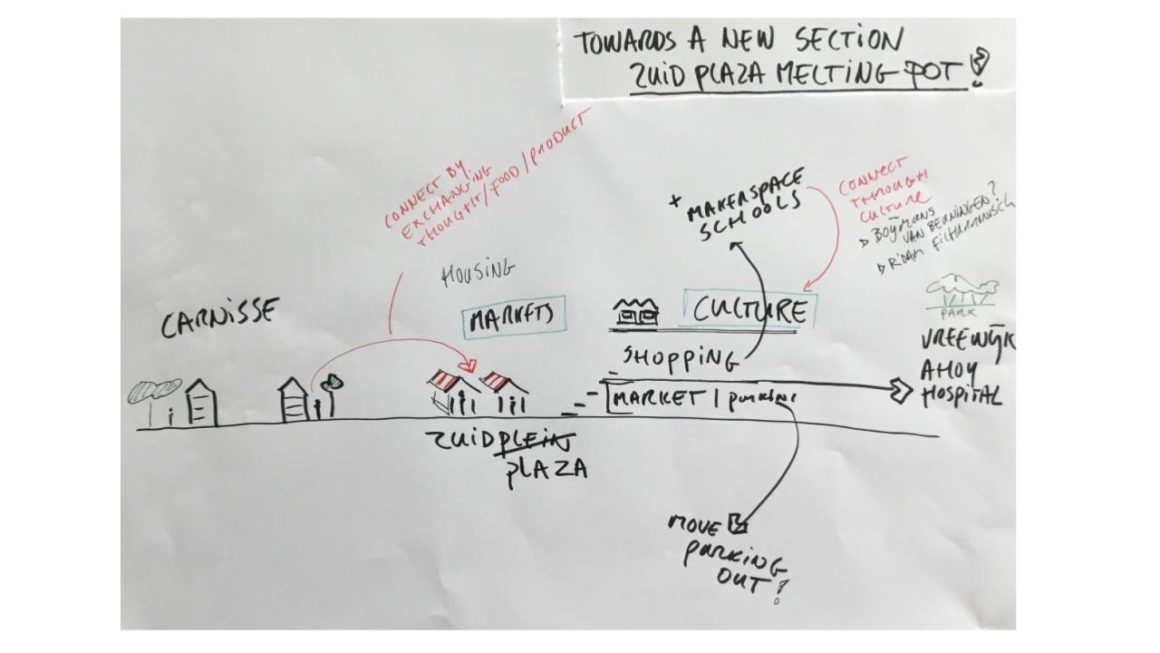 TOWARDS A NEW SECTION
ZUID PLAZA MELTING POT!
CONNECT BY
EXCHANGING
THOUGHT/FOOD/PRODUCT
HOUSING
CARNISSE
MARKETS
+ MAKERSPACE
SCHOOLS
CONNECT
THROUGH
CULTURE
BOŸMANS
VAN BEUNINGEN?
R'DAM FILHARMONISCH
CULTURE
SHOPPING
MARKET | parking
PARK
VREEWŸK
AHOY
HOSPITAL
ZUIDPLEIN
PLAZA
MOVE
PARKING
OUT!